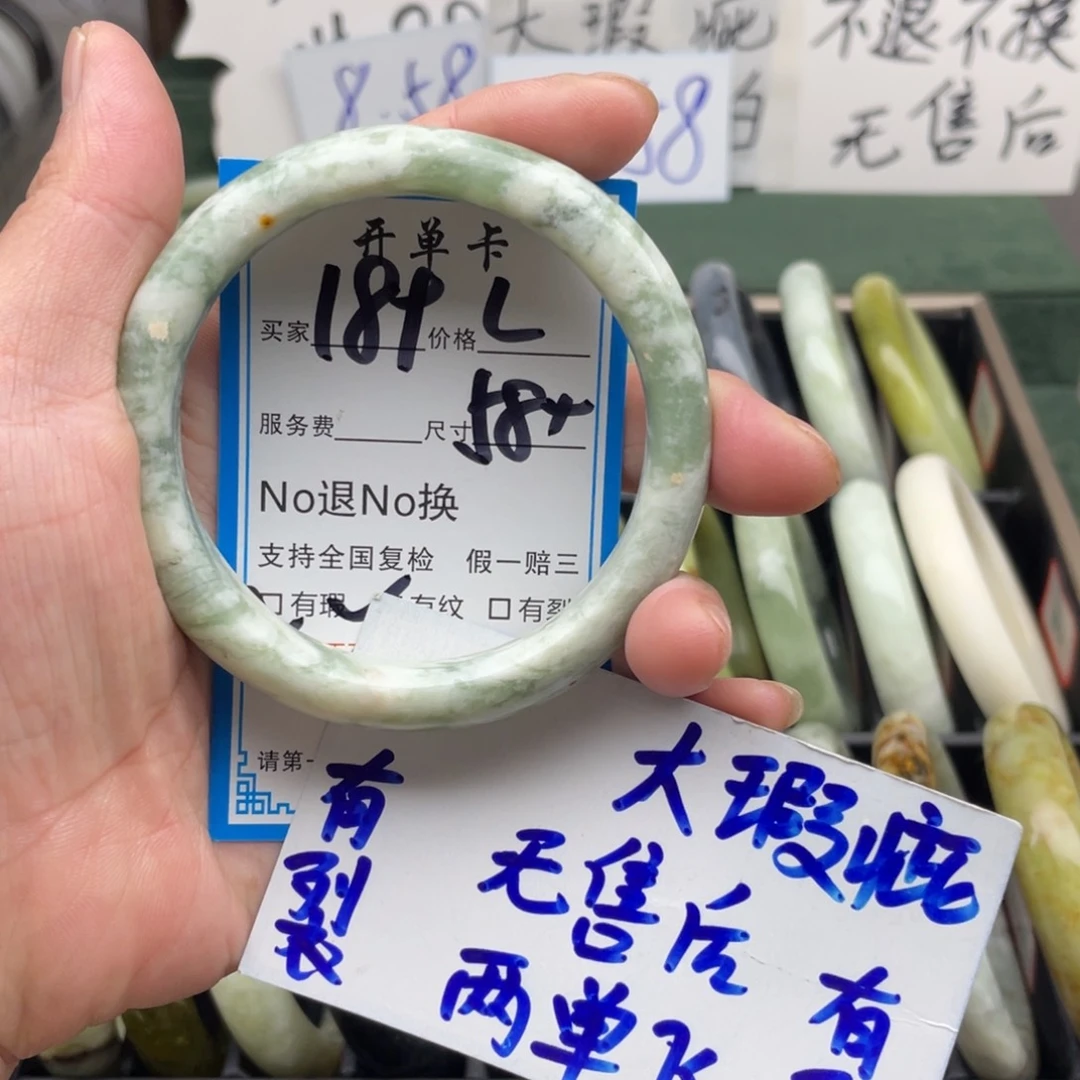 8.58
大瑕疵
58
白
不退不换
无售后
开单卡
买家 184 价格 L
服务费 尺寸 58+
No退No换
支持全国复检 假一赔三
口有瑕 有纹 口有裂
请第一
有裂
大瑕疵
无售后
两单
有